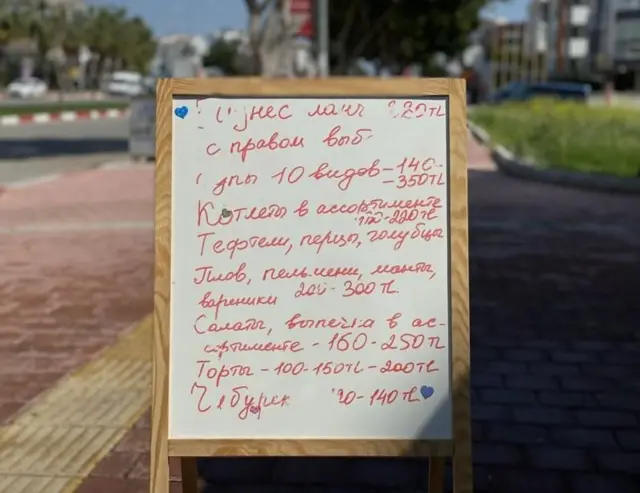 ланч
с правом
10 видов - 140-
- 350TL
Котлеты в ассортименте
- 220TL
Тефтели, перцы, голубцы
Плов, пельмени, манты,
вареники 200 - 300TL
Салаты, выпечка в ас-
сортименте - 160 - 250TL
Торты - 100 - 150TL - 200TL
Чебурек - 140TL